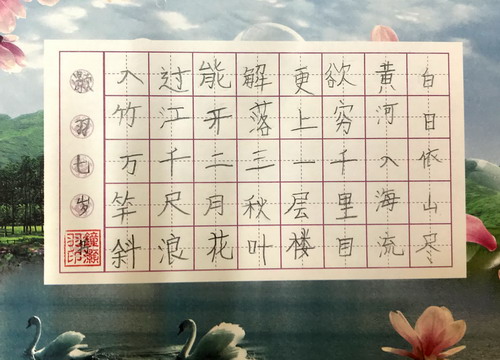 白日依山尽
黄河入海流
欲穷千里目
更上一层楼
解落三秋叶
能开二月花
过江千尺浪
入竹万竿斜
羽七岁